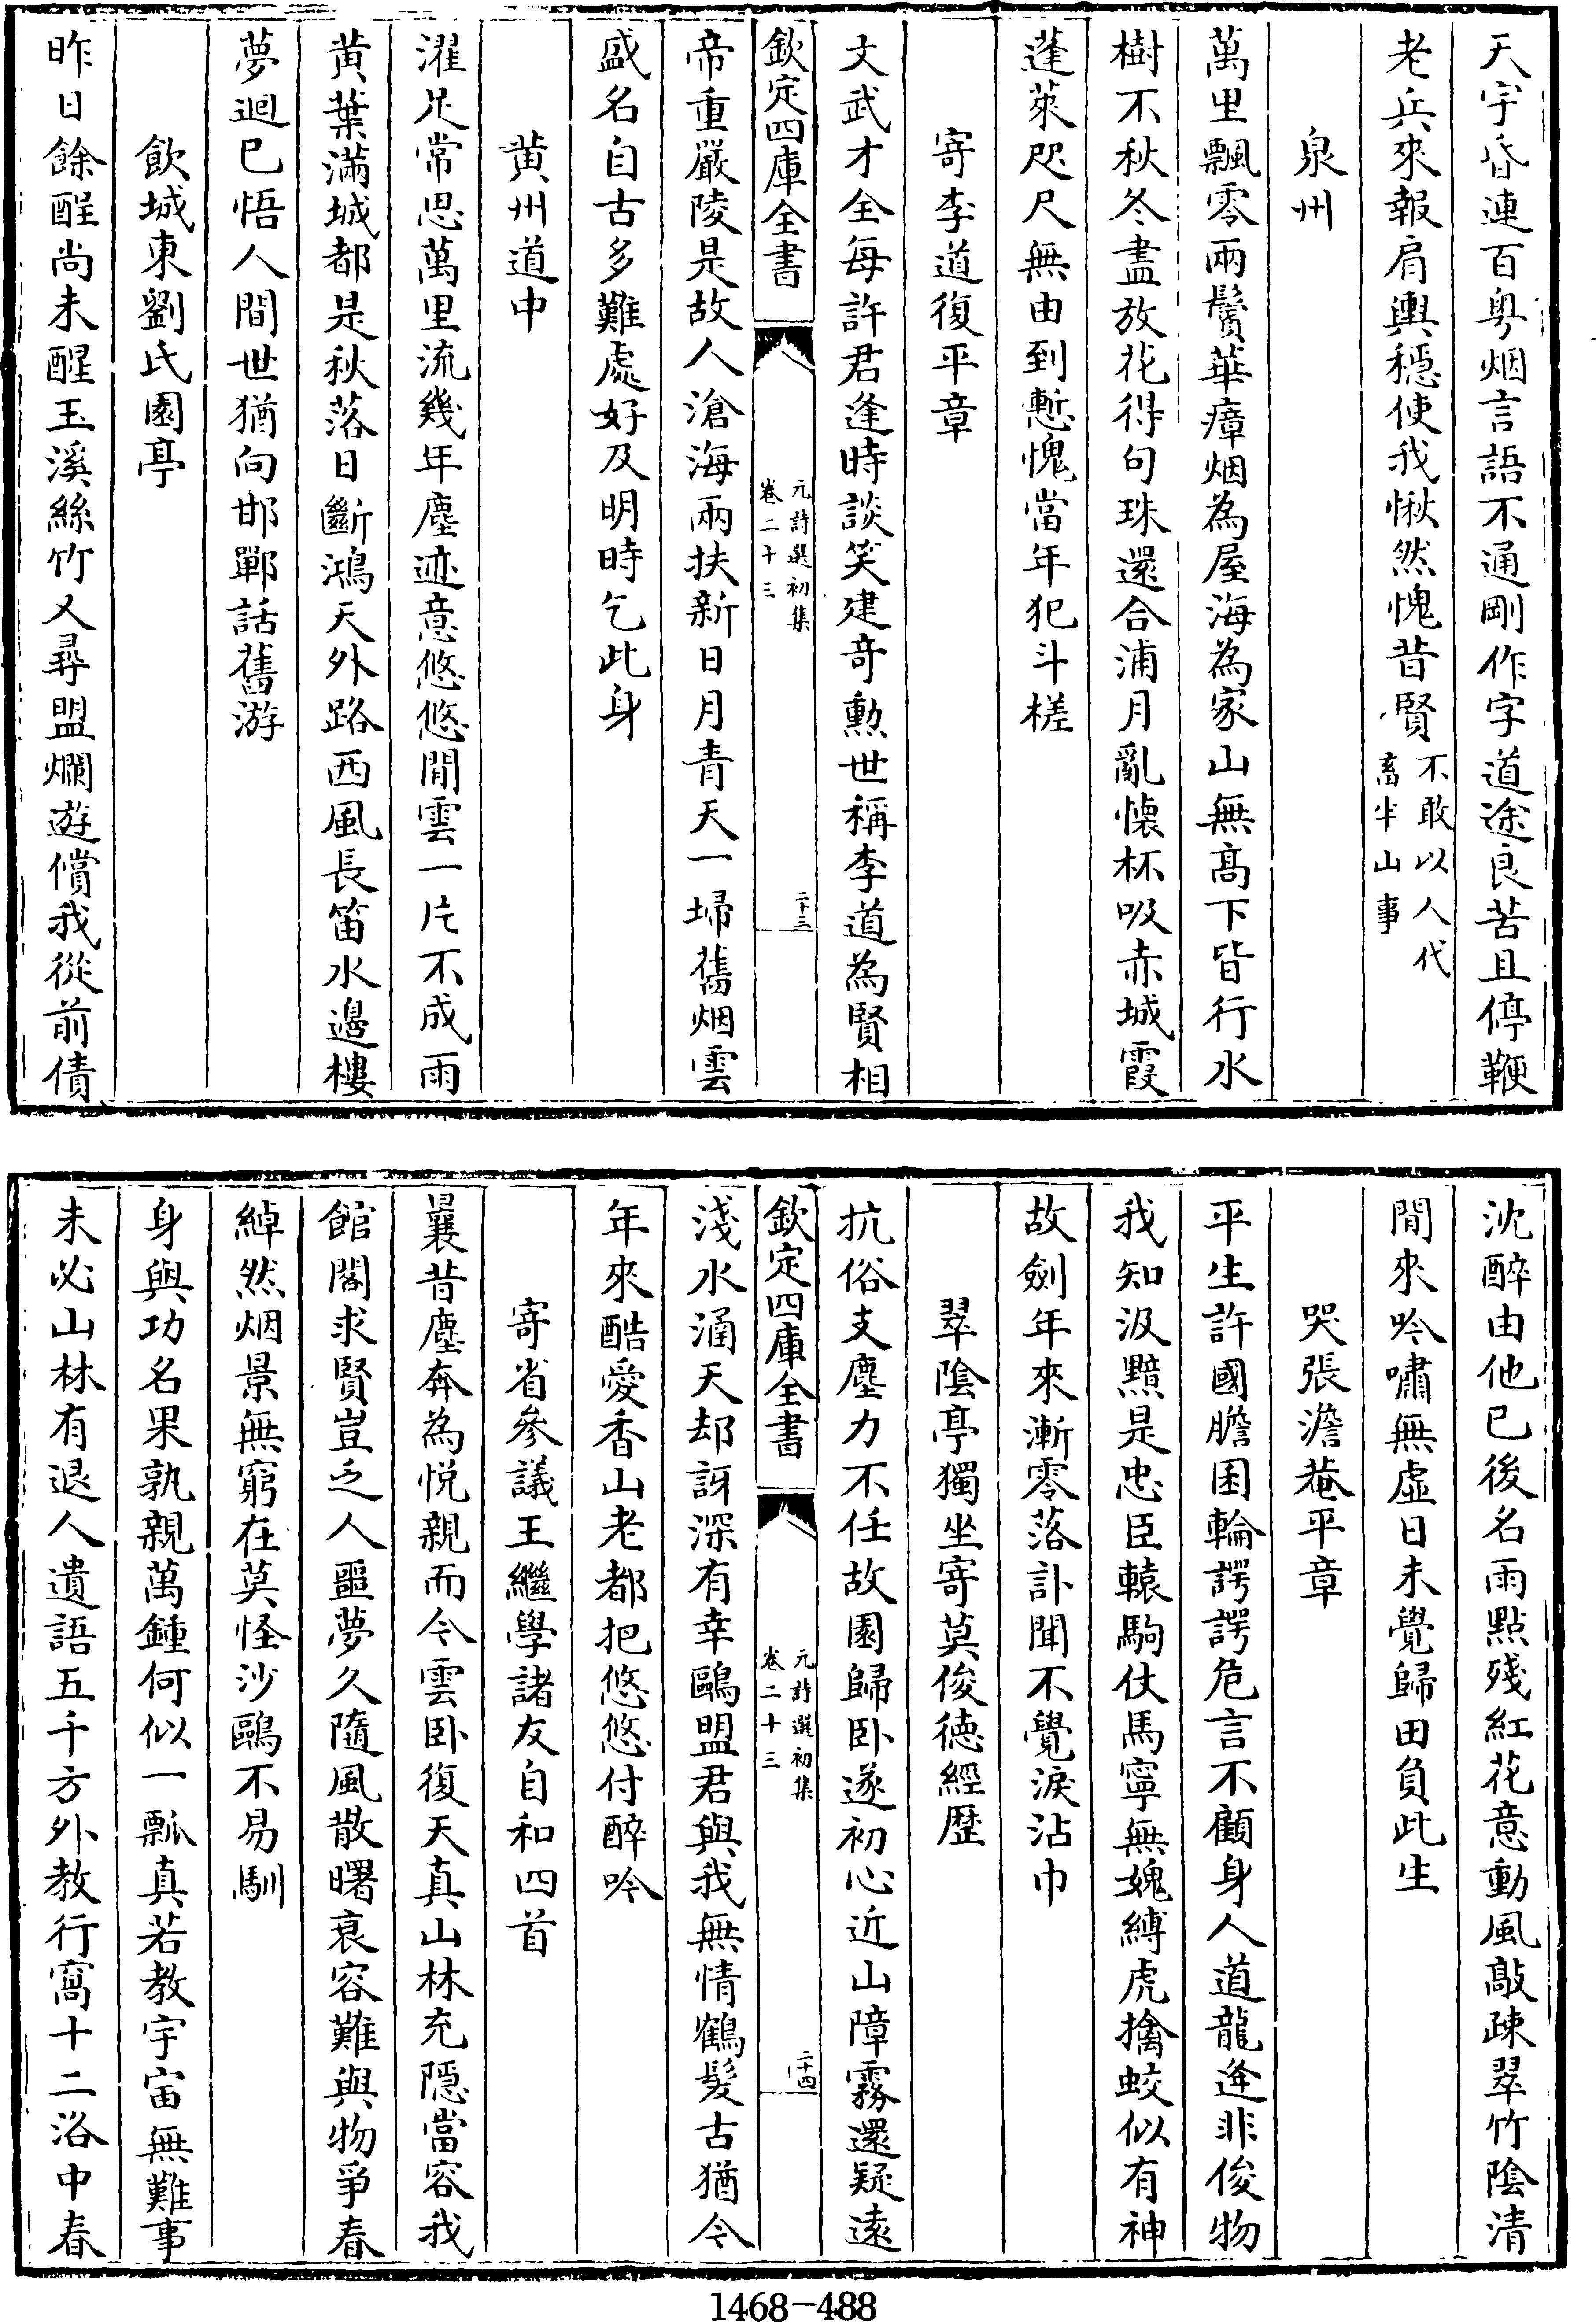 天宇昏連百粤烟言語不通剛作字道途良苦且停鞭
老兵來報肩輿穩使我愀然愧昔賢不敢以人代畜半山事
泉州
萬里飄零兩鬢華瘴烟為屋海為家山無髙下皆行水
樹不秋冬盡放花得句珠還合浦月亂懷杯吸赤城霞
蓬萊咫尺無由到慙愧當年犯斗槎
寄李道復平章
文武才全每許君逢時談笑建竒勲世稱李道為賢相
欽定四庫全書
元詩選初集
卷二十三
二十三
帝重嚴陵是故人滄海兩扶新日月青天一埽舊烟雲
盛名自古多難處好及明時乞此身
黄州道中
濯足常思萬里流幾年塵迹意悠悠閒雲一片不成雨
黄葉滿城都是秋落日斷鴻天外路西風長笛水邊樓
夢迴已悟人間世猶向邯鄲話舊游
飲城東劉氏園亭
昨日餘酲尚未醒玉溪絲竹又尋盟爛遊償我從前債
沈醉由他已後名雨點殘紅花意動風敲疎翠竹陰清
閒來吟嘯無虛日未覺歸田負此生
哭張澹菴平章
平生許國膽囷輪諤諤危言不顧身人道龍逄非俊物
我知汲黯是忠臣轅駒仗馬寧無媿縛虎擒蛟似有神
故劍年來漸零落訃聞不覺淚沾巾
翠陰亭獨坐寄莫俊德經歴
抗俗支塵力不任故園歸卧遂初心近山障霧還疑逺
欽定四庫全書
元詩選初集
卷二十三
二十四
淺水涵天却訝深有幸鷗盟君與我無情鶴髮古猶今
年來酷愛香山老都把悠悠付醉吟
寄省參議王繼學諸友自和四首
曩昔塵奔為悅親而今雲卧復天真山林充隱當容我
館閣求賢豈乏人噩夢久隨風散曙衰容難與物爭春
綽然烟景無窮在莫怪沙鷗不易馴
身與功名果孰親萬鍾何似一瓢真若教宇宙無難事
未必山林有退人遺語五千方外教行窩十二洛中春
1468-488